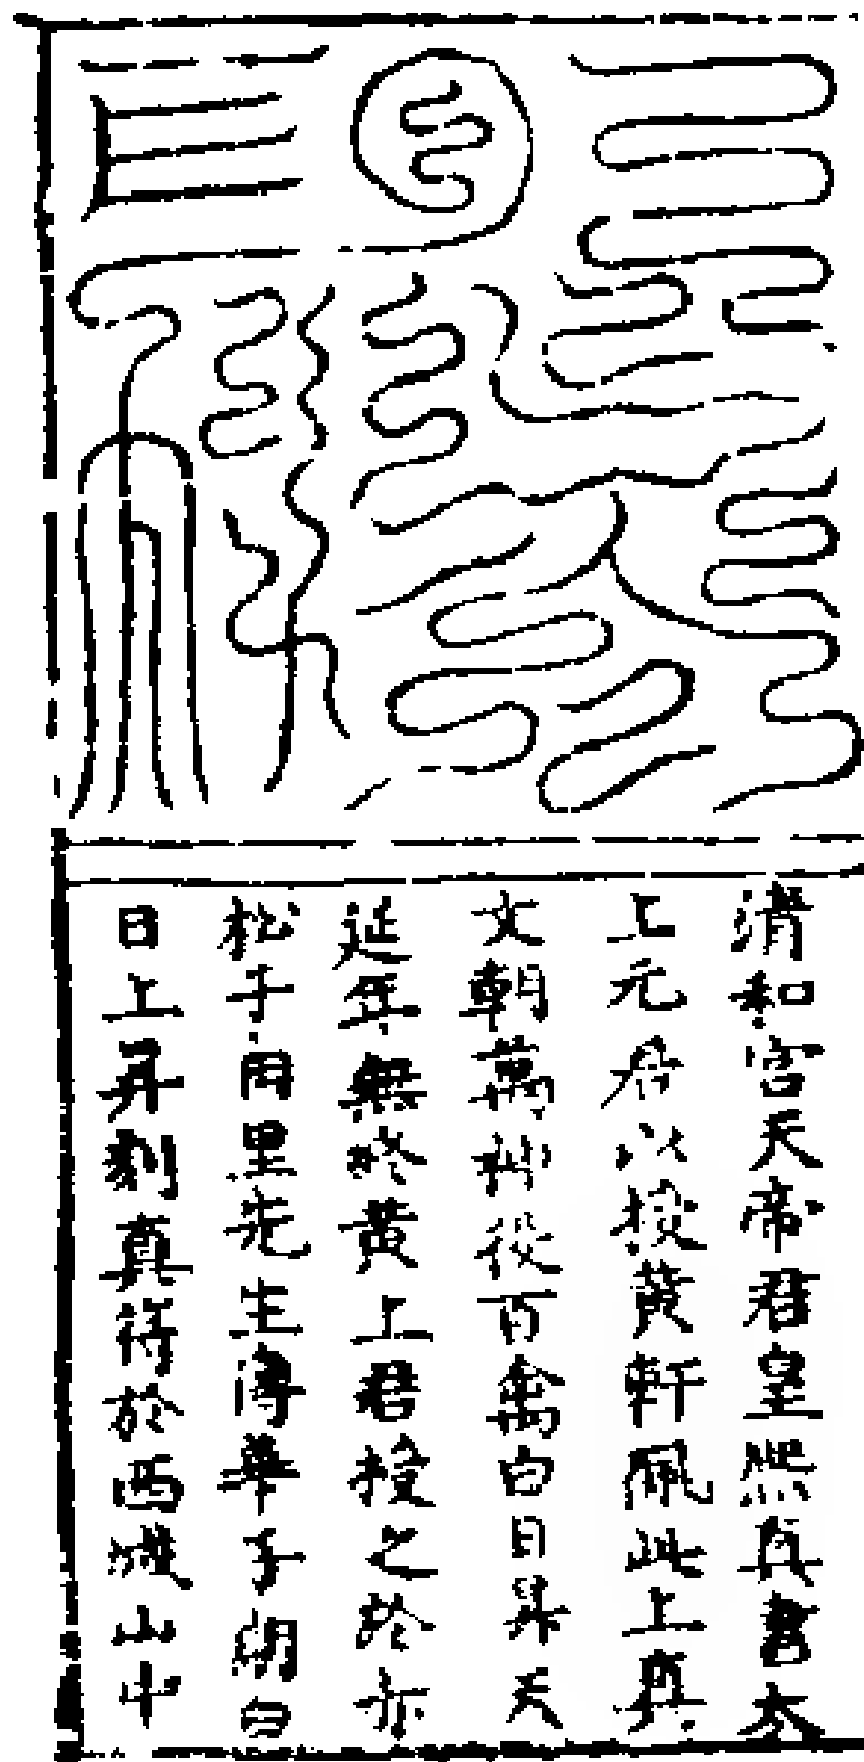 清和宮天帝君皇熙真書太
上元君以授黃軒佩此上真
文朝萬神役百禽白日昇天
延年無終黃上君授之於赤
松子用里先生傳華子朗白
日上昇劉真得於西城山中